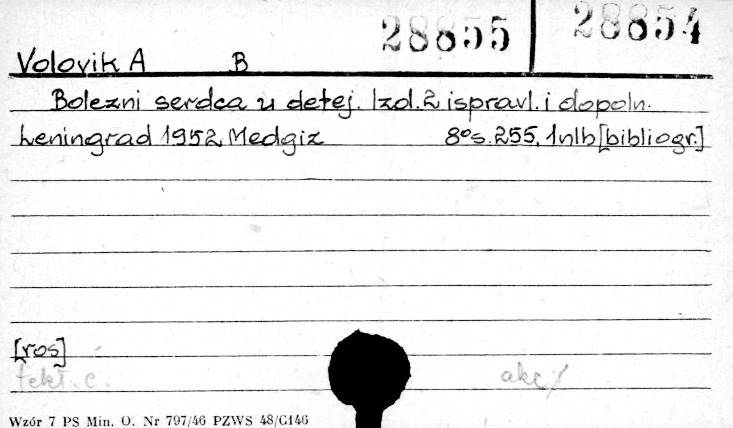 28855 28854
Volovik A B
Bolezni serdca u detej. Izd. 2 ispravl. i dopoln.
Leningrad 1952, Medgiz 8º s. 255, 1 nlb [bibliogr.]
[ros]
akc
Wzór 7 PS Min. O. Nr 797/46 PZWS 48/C146